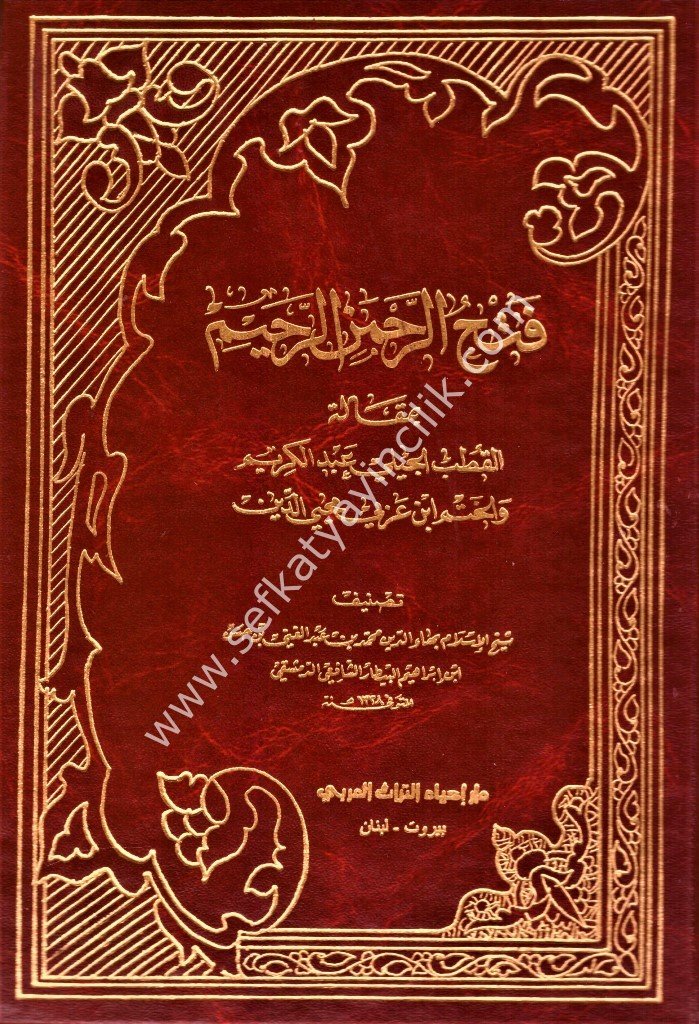 فَتْحُ الرَّحْمٰنِ الرَّحِيْمِ
بمقالة
القطب الجيلي عبد الكريم
والختم ابن عربي محيي الدين
تصنيف
شيخ الإسلام بهاء الدين محمد بن عبد الغني بن
ابن ابراهيم البيطار الشافعي الدمشقي
المتوفى ١٣٢٨ سنة
دار إحياء التراث العربي
بيروت - لبنان
www.sefkatyayincilik.com